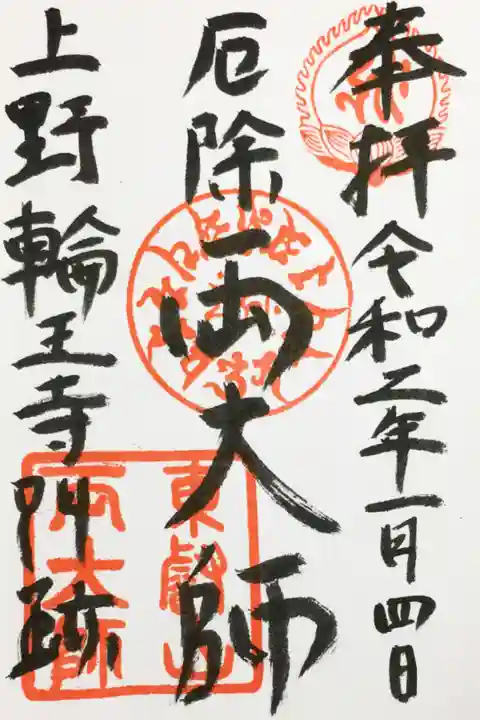 奉拝 令和二年一月四日
厄除両大師
上野輪王寺門跡
東叡山
両大師